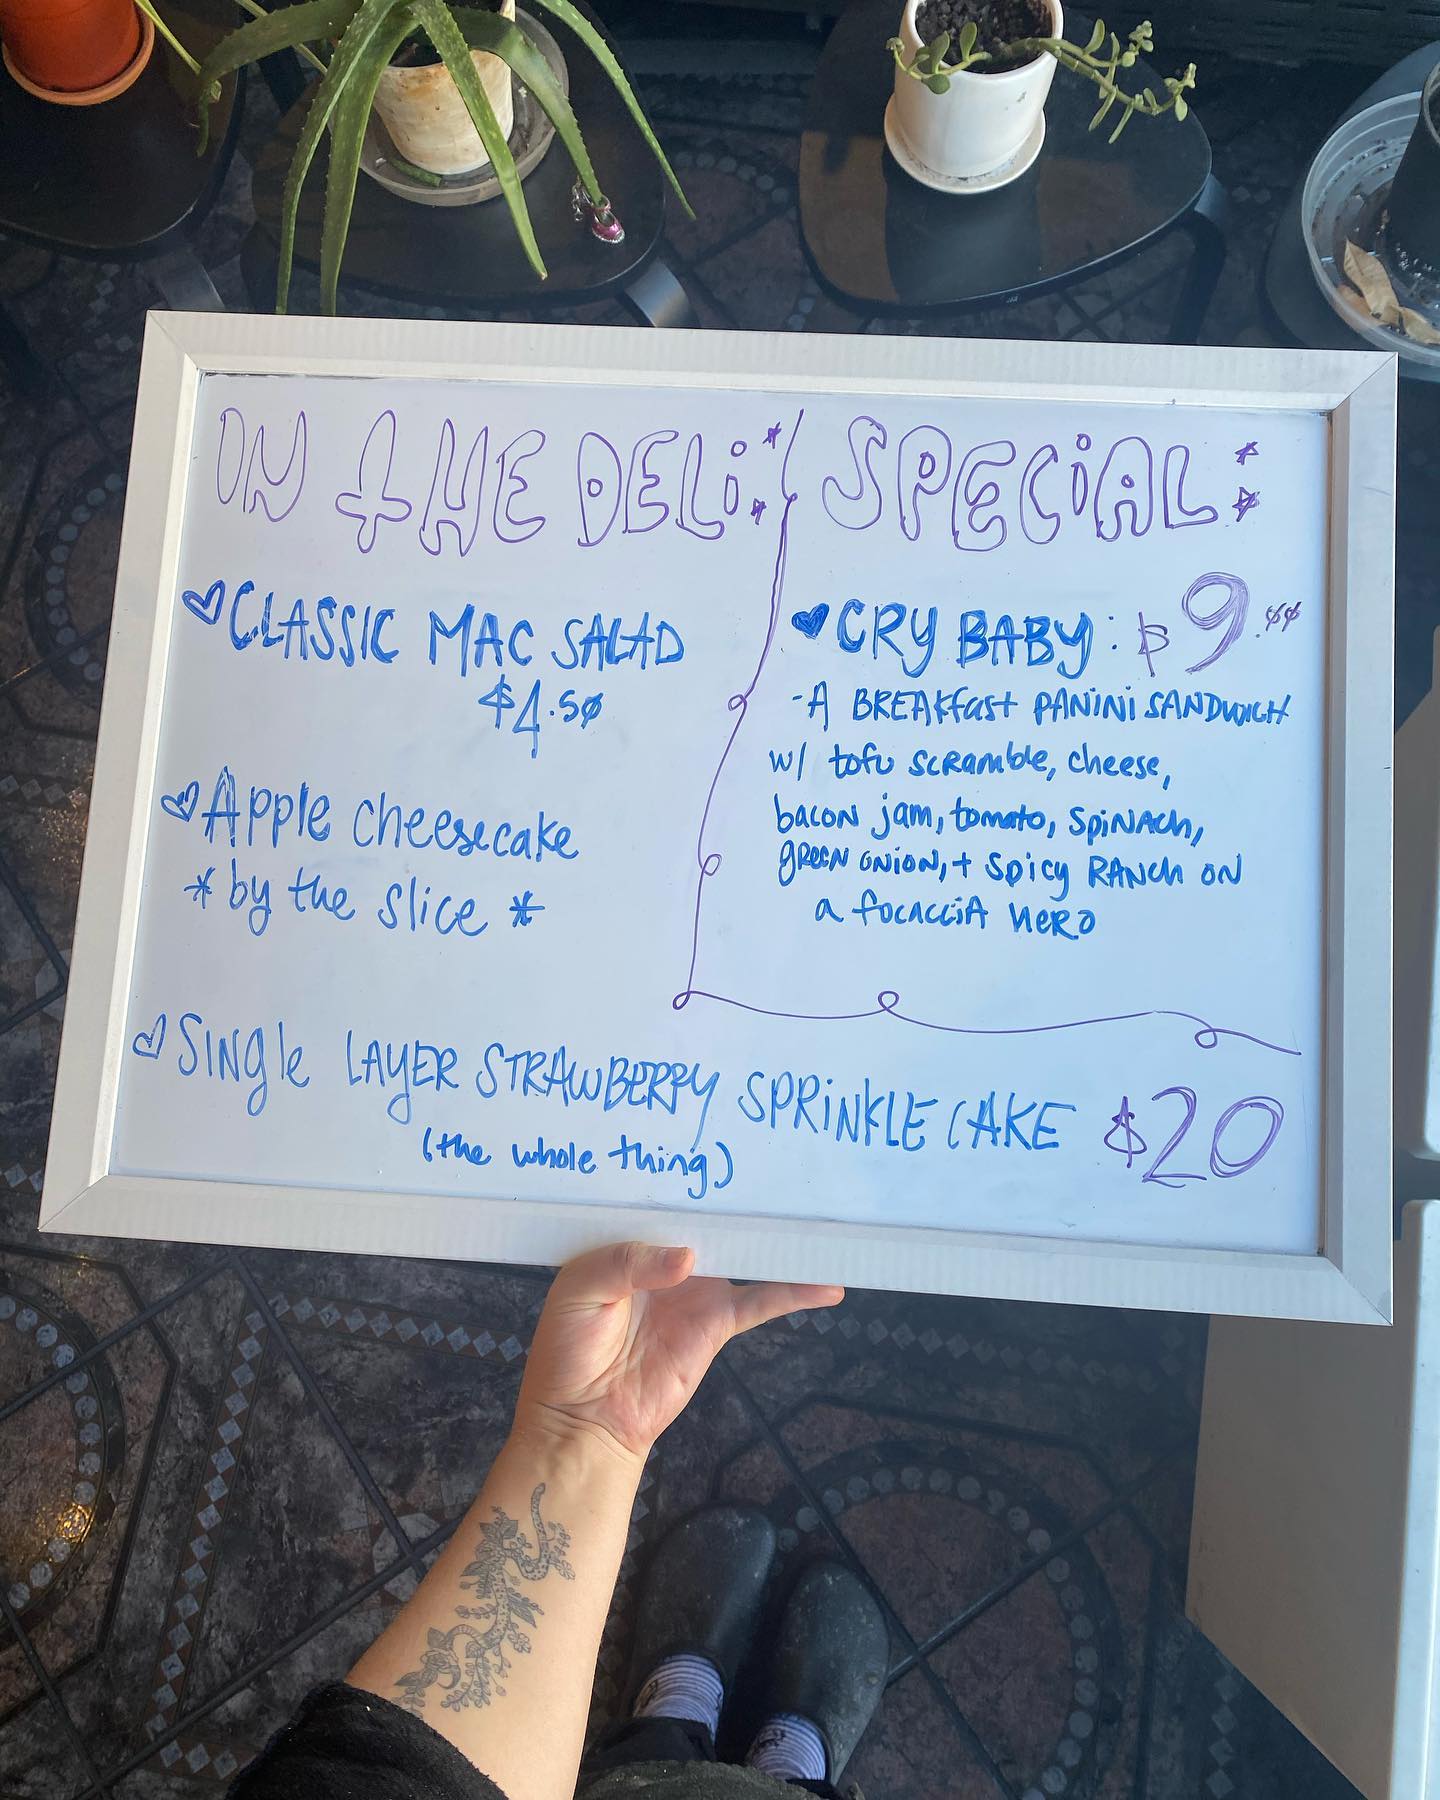 ON THE DELI:
CLASSIC MAC SALAD
$4.50
Apple cheesecake
*by the slice*
SPECIAL:
CRY BABY: $9.00
-A BREAKfast PANiNi SANDWICH
w/ tofu scramble, cheese,
bacon jam, tomato, spinach,
green onion, + spicy RANCH ON
a focaccia hero
Single LAYER STRAWBERRY SPRiNKLE CAKE $20
(the whole thing)